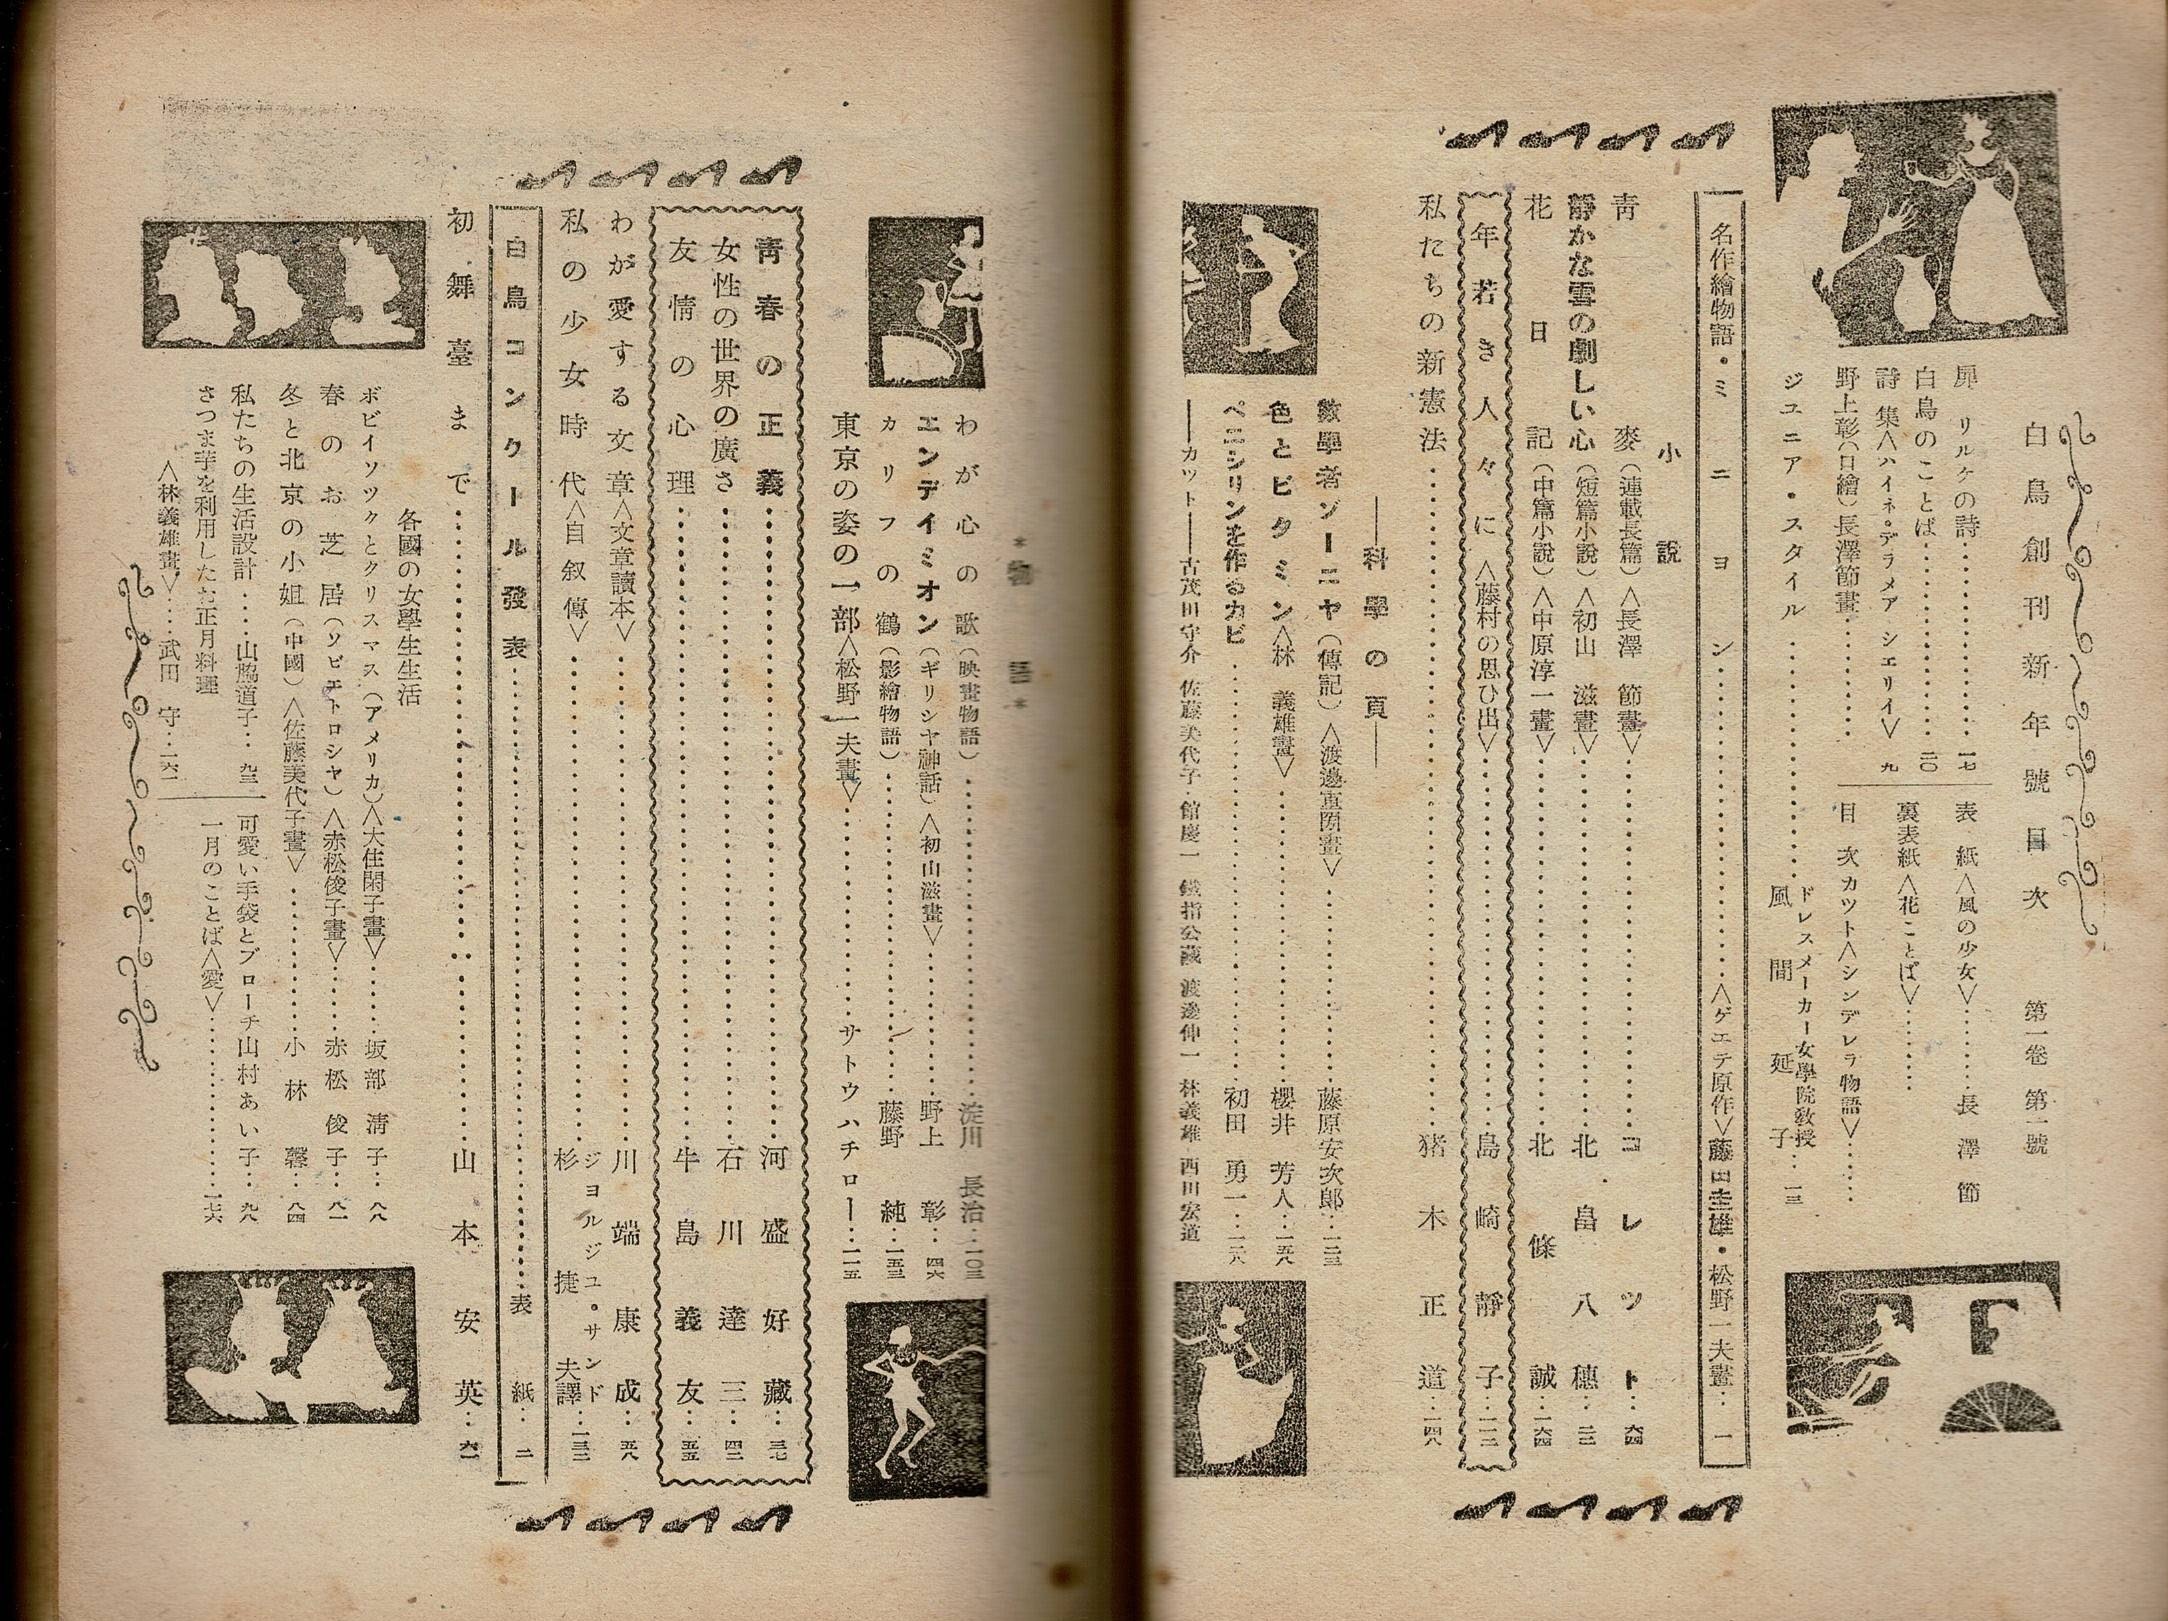 白鳥創刊新年號目次　第一卷　第一號
扉　リルケの詩…………一七
白鳥のことば…………二〇
詩集＜ハイネ・デラメア　シエリイ＞　九
野上彰（口繪）長澤節畫…………
表紙＜風の少女＞………長澤節
裏表紙＜花ことば＞…………
目次カツト＜シンデレラ物語＞……
ジユニア・スタイル…………ドレスメーカー女學院敎授
風間延子…一三
名作繪物語・ミニヨン…………＜ゲエテ原作＞藤田圭雄・松野一夫畫…一
小說
靑麥（連載長篇）＜長澤　節畫＞…………コレツト…六四
靜かな雲の劇しい心（短篇小說）＜初山　滋畫＞…………北畠八穗…二三
花日記（中篇小說）＜中原淳一畫＞…………北條誠…一六四
年若き人々に＜藤村の思ひ出＞…………島崎靜子…一一二
私たちの新憲法…………猪木正道…一四八
――科學の頁――
數學者ソーニヤ（傳記）＜渡邊畫＞…………藤原安次郞…一二三
色とビタミン＜林　義雄畫＞…………櫻井　芳人…一五八
ペニシリンを作るカビ…………初田　勇一…一二八
――カツト――古茂田守介　佐藤美代子　館慶一　鐵指公藏　渡邊伸一　林義雄　西川宏道
＊物語＊
わが心の歌（映畫物語）…………淀川　長治…一〇三
エンデイミオン（ギリシヤ神話）＜初山滋畫＞…………野上　彰…四六
カリフの鶴（影繪物語）…………藤野　純…一五三
東京の姿の一部＜松野一夫畫＞…………サトウハチロー…一一五
靑春の正義…………河盛好藏…三七
女性の世界の廣さ…………石川達三…四二
友情の心理…………牛島義友…五五
わが愛する文章＜文章讀本＞…………川端康成…五八
私の少女時代＜自叙傳＞…………ジヨルジユ・サンド
杉捷夫譯…一三二
白鳥コンクール發表…………表紙…二
初舞臺まで…………山本安英…六一
各國の女學生生活
ボビイソツクとクリスマス（アメリカ）＜大住閑子畫＞………坂部　淸子…八八
春のお芝居（ソビエトロシヤ）＜赤松俊子畫＞………赤松　俊子…八一
冬と北京の小姐（中國）＜佐藤美代子畫＞…………小林　馨…八四
私たちの生活設計……山脇道子…九三
さつま芋を利用したお正月料理
＜林義雄畫＞……武田　守…一六二
可愛い手袋とブローチ山村あい子…九八
一月のことば＜愛＞…………一七六